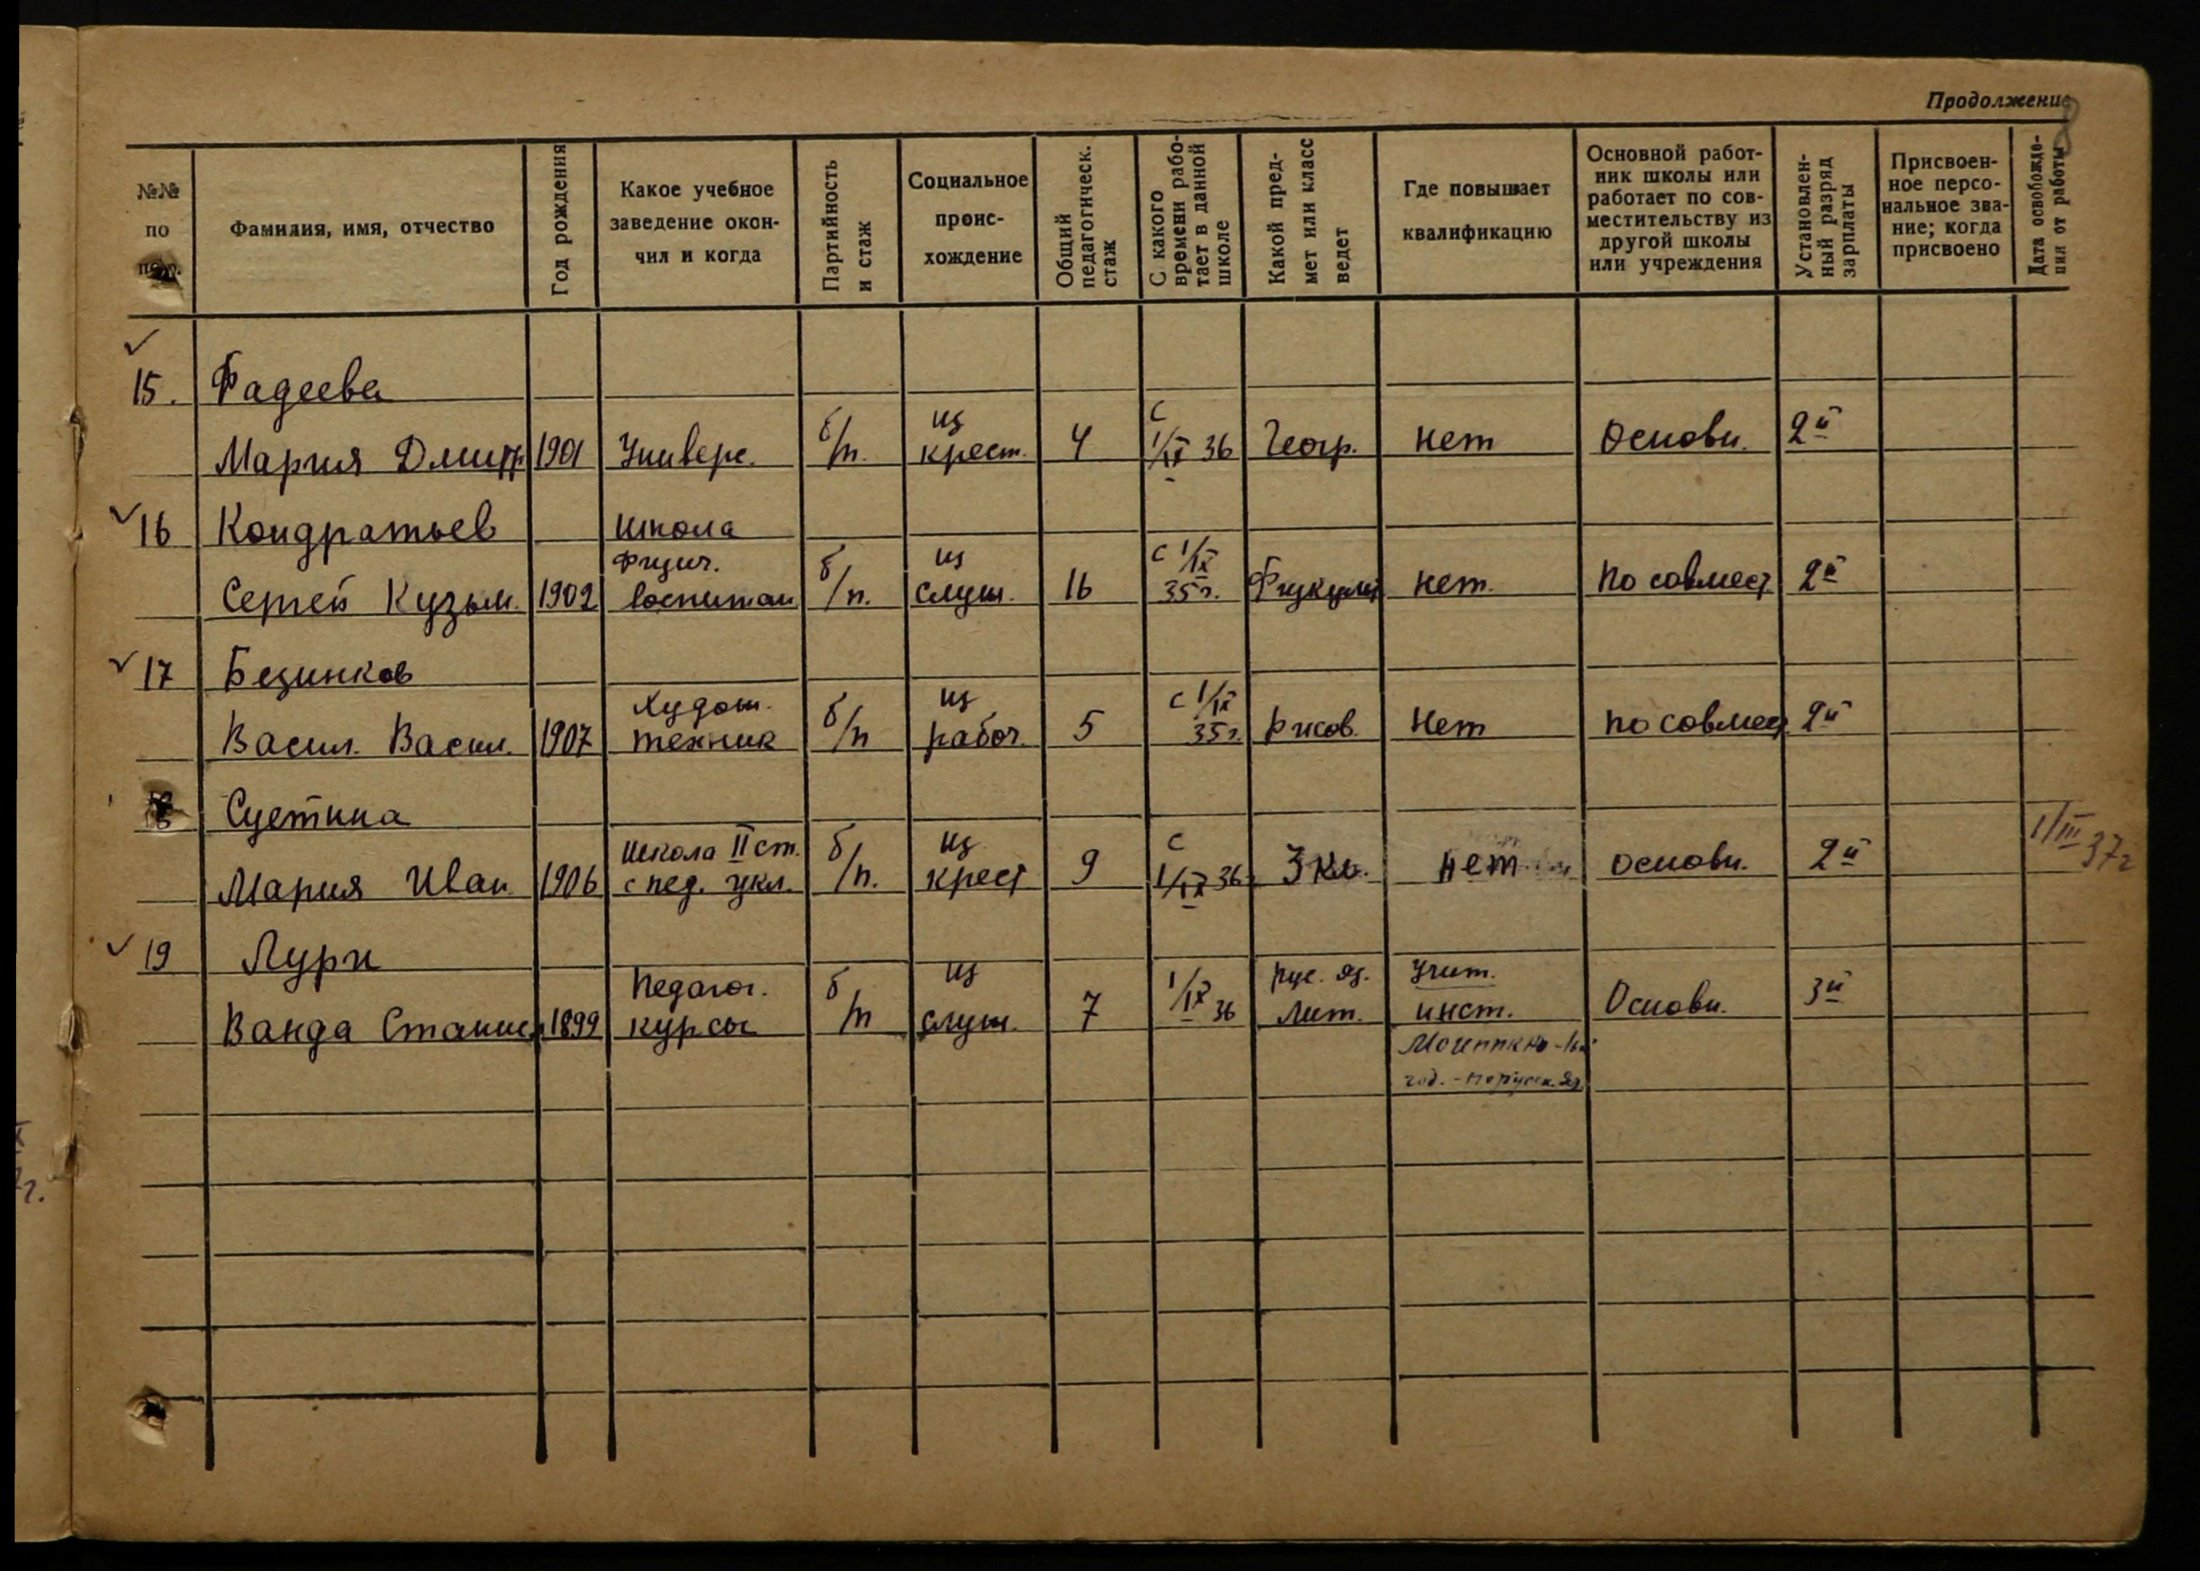 Продолжение
8
№№ по пор.
Фамилия, имя, отчество
Год рождения
Какое учебное заведение окончил и когда
Партийность и стаж
Социальное проис-
хождение
Общий педагогическ. стаж
С какого времени рабо-
тает в данной школе
Какой пред-
мет или класс ведет
Где повышает квалификацию
Основной работ-
ник школы или
работает по сов-
местительству из
другой школы
или учреждения
Установлен-
ный разряд
зарплаты
Присвоен-
ное персо-
нальное зва-
ние; когда
присвоено
Дата освобожде-
ния от работы
15. Фадеева
Мария Дмитр. 1901 Универс. б/п. из крест. 4 с 1/IX 36 Геогр. нет Основн. 2й
16 Кондратьев
Сергей Кузьм. 1902 Школа физич. воспитан б/п. из служ. 16 с 1/IX 35 г. Физкульт нет. по совмест. 2й
17 Безинков
Васил. Васил. 1907 Худож. техник б/п из рабоч. 5 с 1/IX 35 г. рисов. нет по совмест. 2й
18 Суетина
Мария Иван. 1906 Школа II ст. с пед. укл. б/п. из крест 9 с 1/IX 36 3 кл. нет основн. 2й 1/III 37 г
19 Лури
Ванда Станисл. 1899 Педагог. курсы б/п из служ. 7 1/IX 36 рус. яз. лит. Учит. инст. Основн. 3й
год. - по русск. яз.